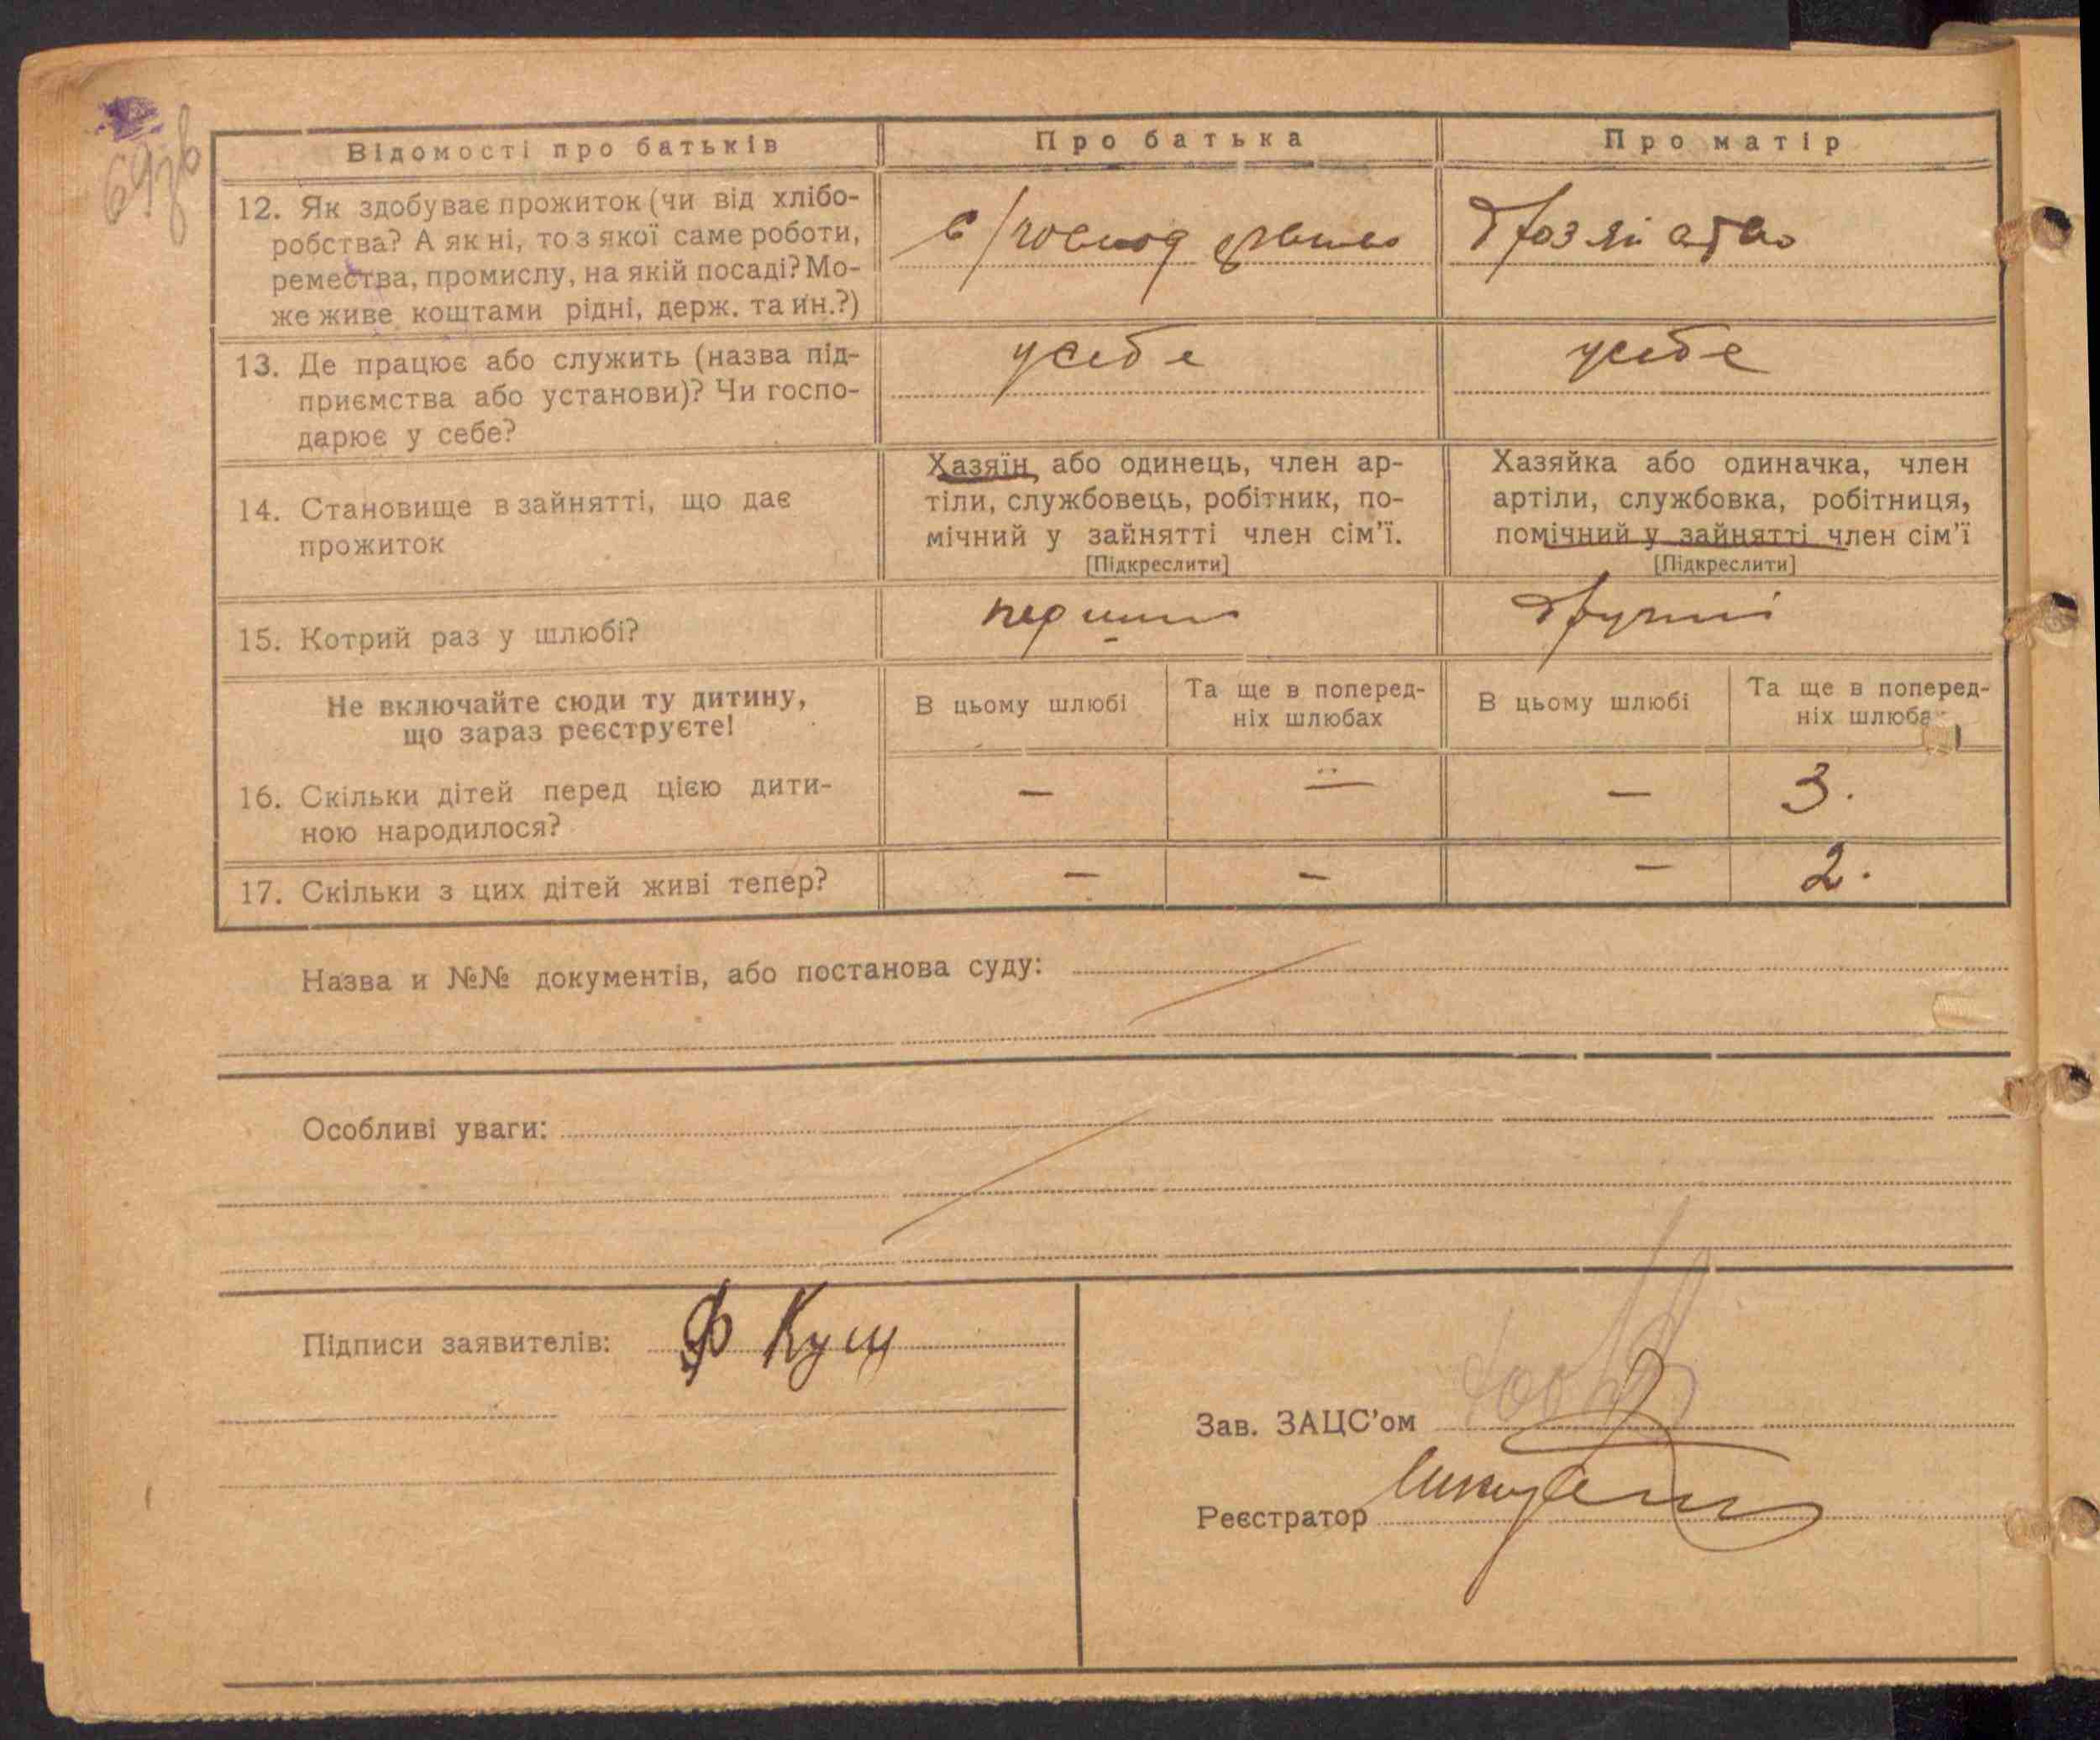 69зв
Відомості про батьків
Про батька
Про матір
12. Як здобуває прожиток (чи від хлібо-
робства? А як ні, то з якої саме роботи,
ремества, промислу, на якій посаді? Мо-
же живе коштами рідні, держ. та ин.?)
с/господ
13. Де працює або служить (назва під-
приємства або установи)? Чи госпо-
дарює у себе?
у себе
у себе
14. Становище в зайнятті, що дає
прожиток
Хазяїн, або одинець, член ар-
тіли, службовець, робітник, по-
мічний у зайнятті член сім'ї.
[Підкреслити]
Хазяйка або одиначка, член
артіли, службовка, робітниця,
помічний у зайнятті член сім'ї
[Підкреслити]
15. Котрий раз у шлюбі?
перший
другий
Не включайте сюди ту дитину,
що зараз реєструєте!
В цьому шлюбі
Та ще в поперед-
ніх шлюбах
В цьому шлюбі
Та ще в поперед-
ніх шлюбах
16. Скільки дітей перед цією дити-
ною народилося?
— — — 3.
17. Скільки з цих дітей живі тепер?
— — — 2.
Назва и №№ документів, або постанова суду:
Особливі уваги:
Підписи заявителів: Ф Кущ
Зав. ЗАЦС'ом
Реєстратор